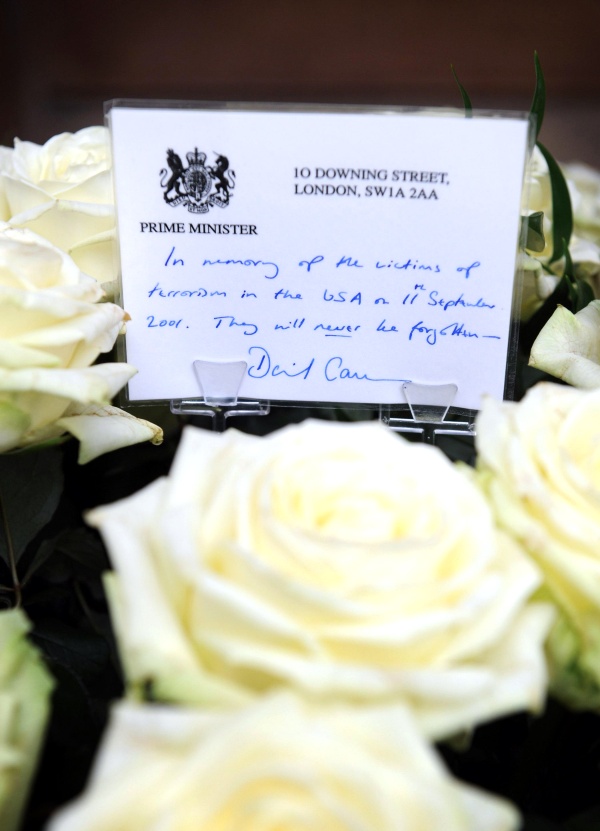 10 DOWNING STREET,
LONDON, SW1A 2AA
PRIME MINISTER
In memory of the victims of
terrorism in the USA on 11th September
2001. They will never be forgotten—
David Cam